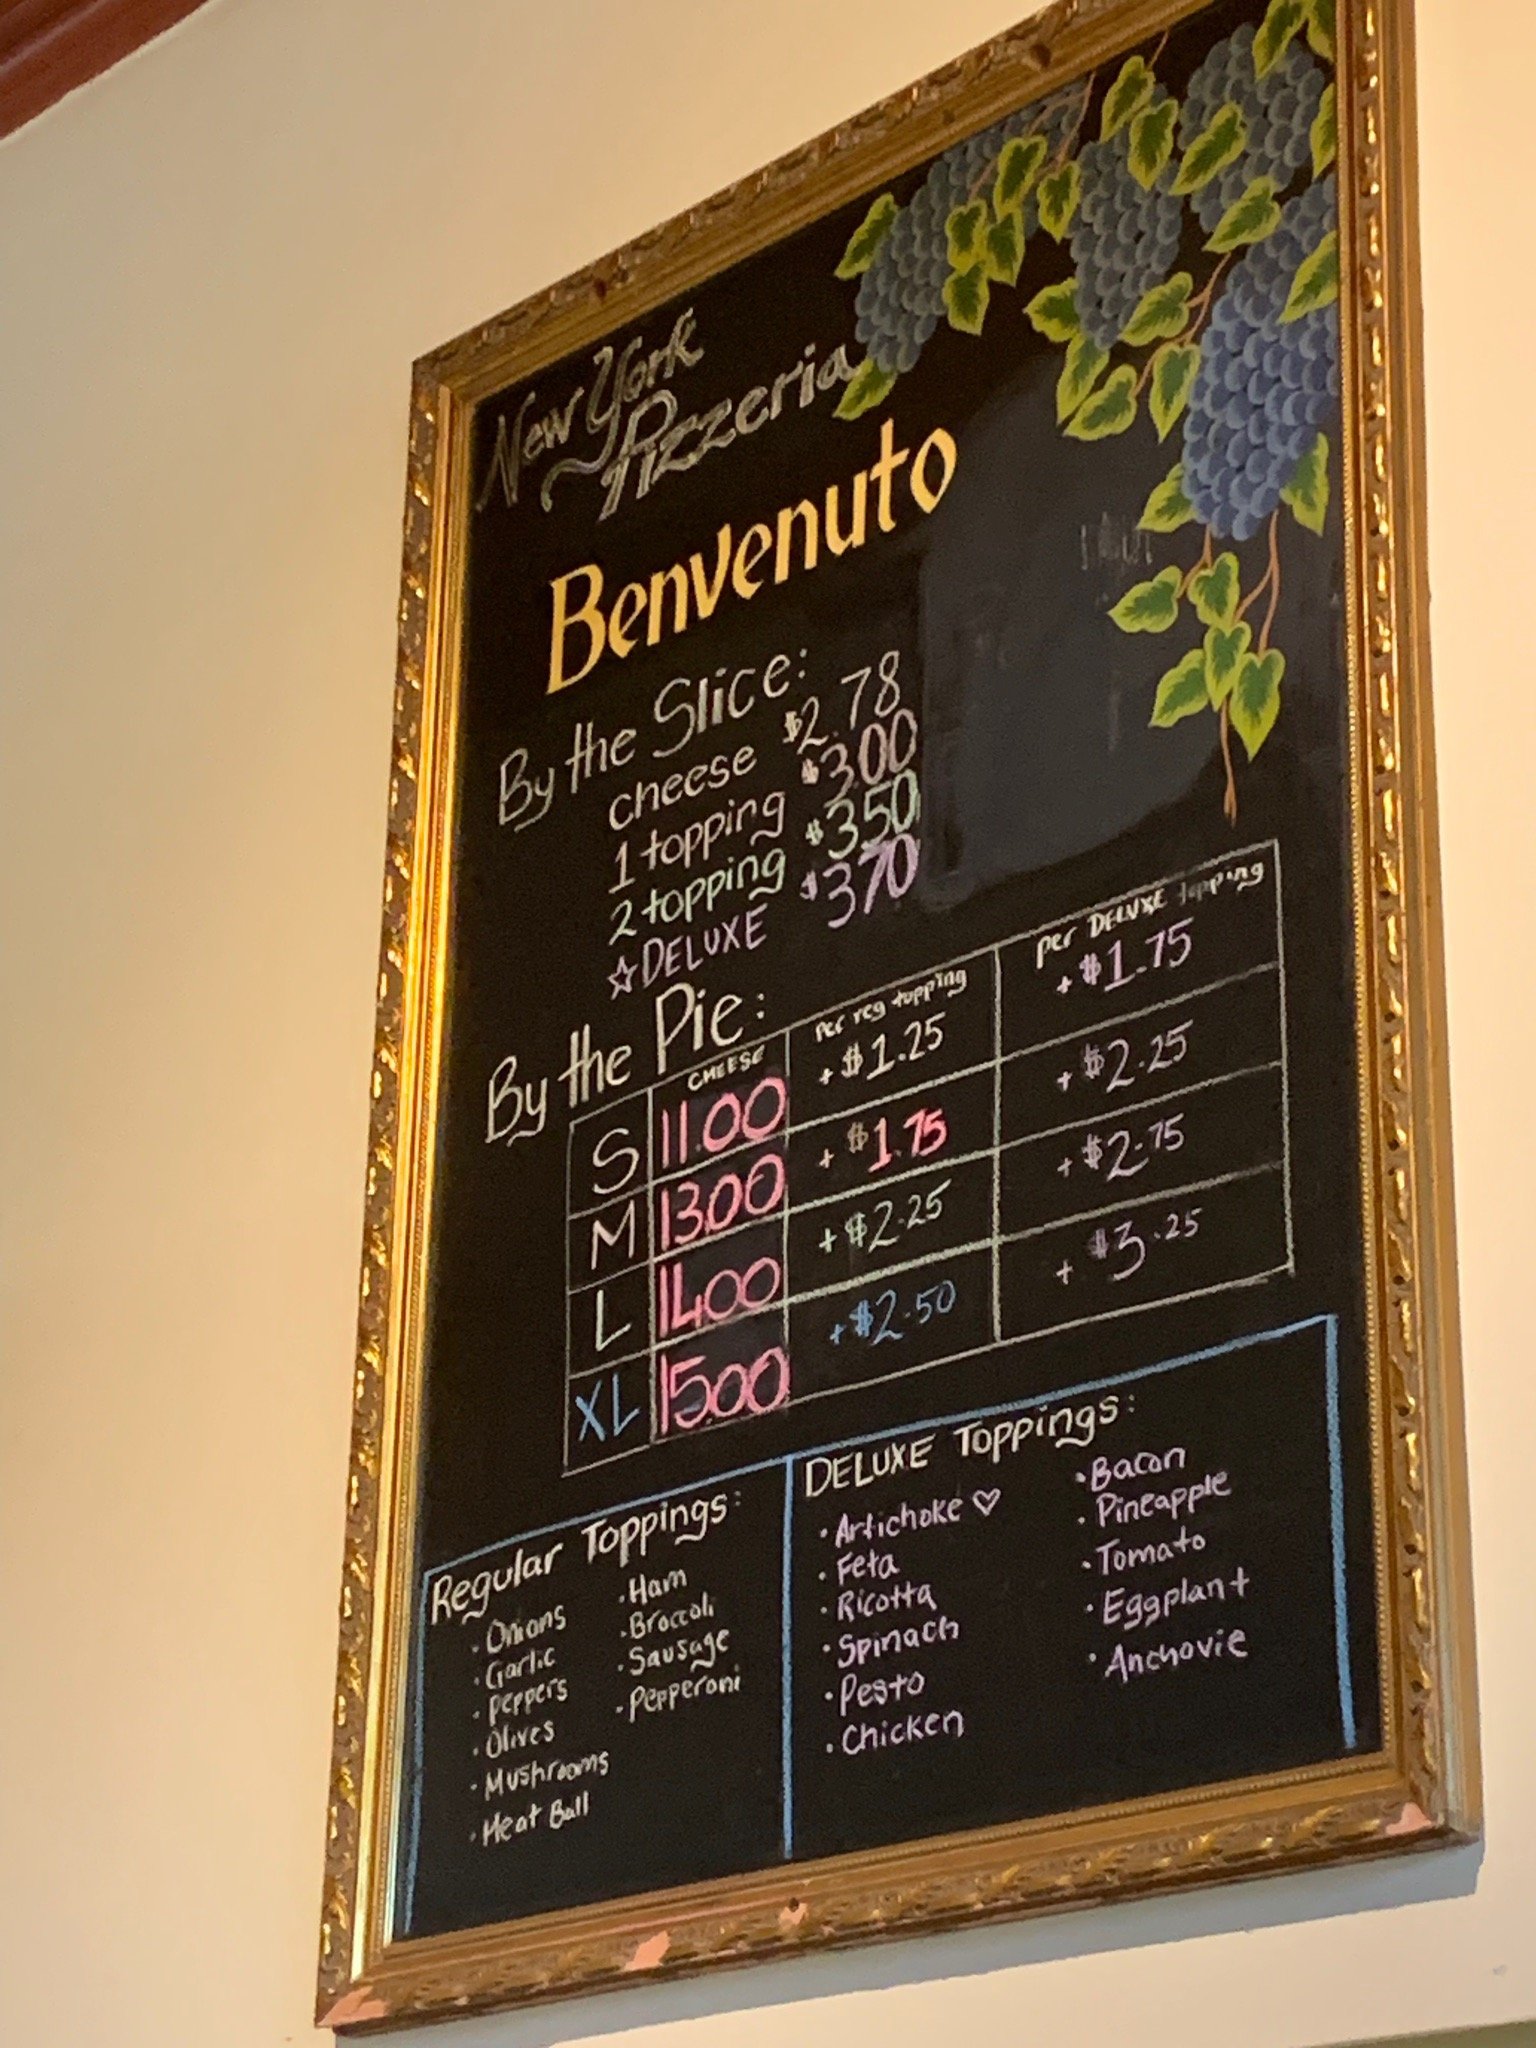 New York
Pizzeria
Benvenuto
By the Slice:
cheese $2.78
1 topping $3.00
2 topping $3.50
☆DELUXE $3.70
By the Pie:
CHEESE per reg topping per DELUXE topping
S 11.00 + $1.25 + $1.75
M 13.00 + $1.75 + $2.25
L 14.00 + $2.25 + $2.75
XL 15.00 + $2.50 + $3.25
Regular Toppings:
• Onions
• Garlic
• Peppers
• Olives
• Mushrooms
• Meat Ball
• Ham
• Broccoli
• Sausage
• Pepperoni
DELUXE Toppings:
• Artichoke ♡
• Feta
• Ricotta
• Spinach
• Pesto
• Chicken
• Bacon
• Pineapple
• Tomato
• Eggplant
• Anchovie